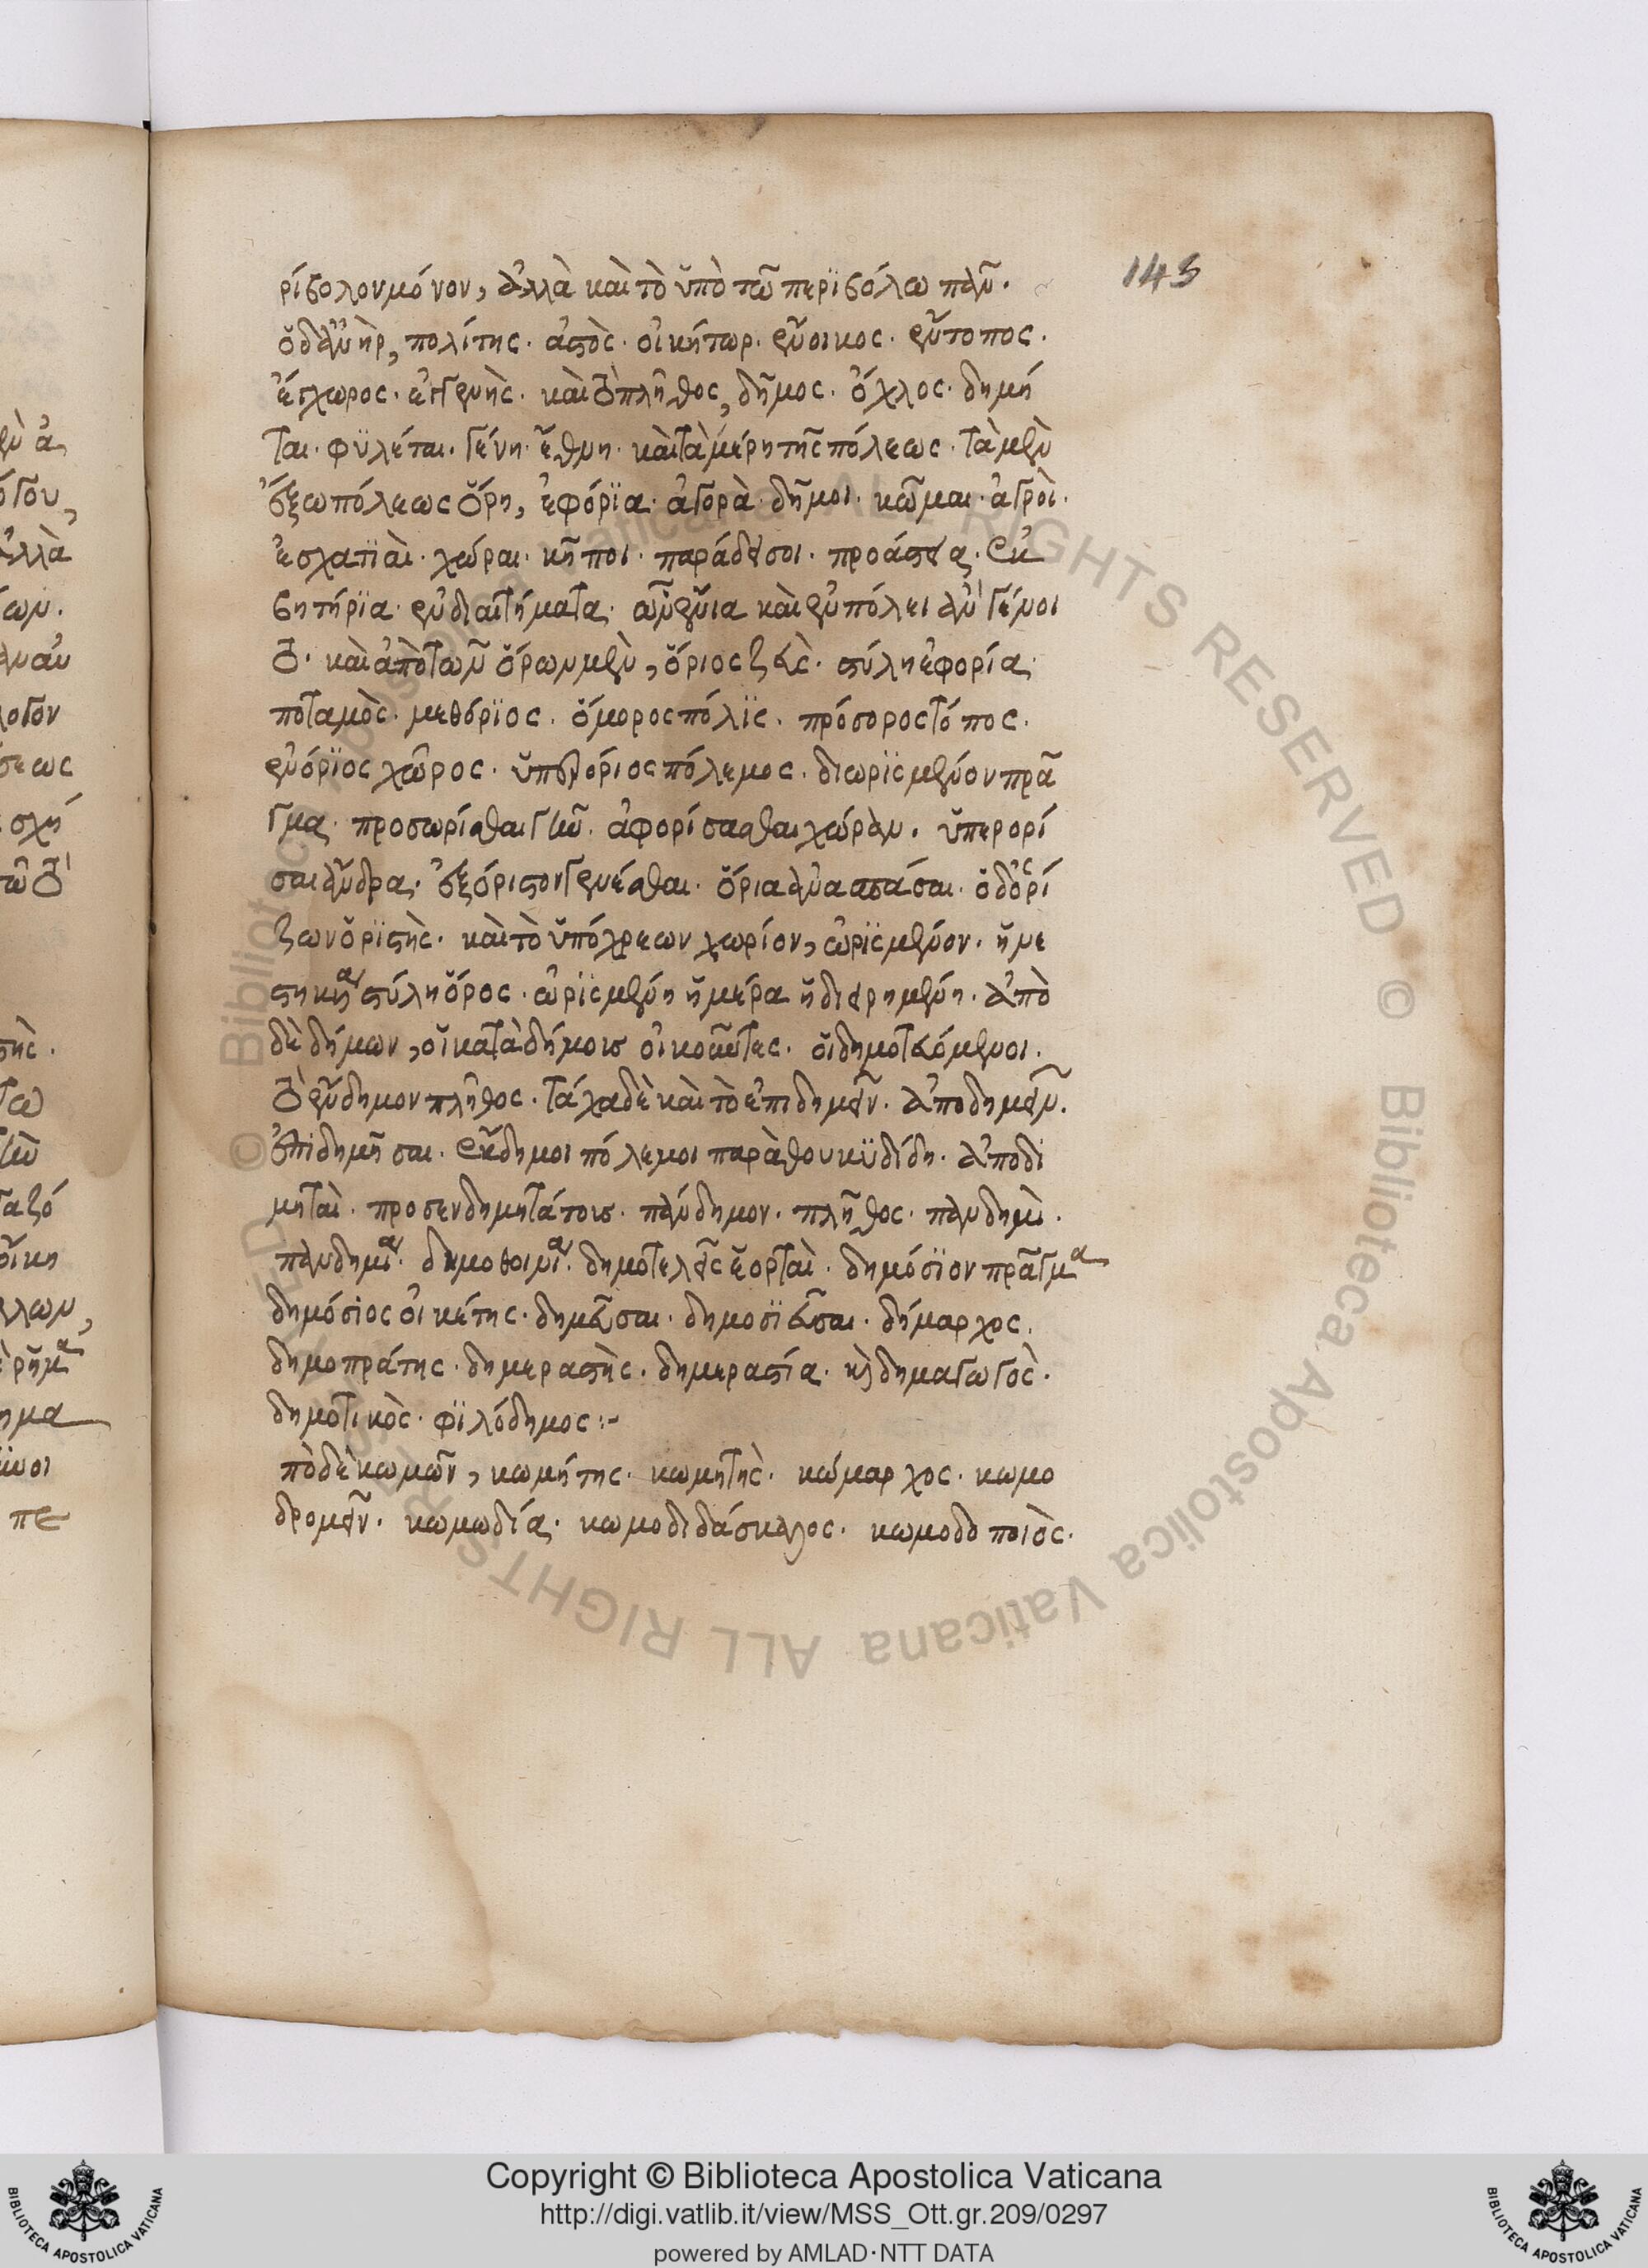 ρίβολον μόνον, ἀλλὰ καὶ τὸ ὑπὸ τῶ περϊβόλω πᾶν.
ὁ δ' ἀνὴρ, πολίτης. ἀστὸς. οἰκήτωρ. ἔνοικος. ἔντοπος.
ἔγχωρος. ἐγγενὴς. καὶ τὸ πλῆθος, δῆμος. ὄχλος. δημό
ται. φϋλέται. γένη. ἔθνη. καὶ τὰ μέρη τῆς πόλεως. τὰ μὲν
ἔξω πόλεως ὄρη, ἐφόρϊα. ἀγορὰ. δῆμοι. κῶμαι. ἀγροὶ.
ἐσχατϊαὶ. χῶραι. κῆποι. παράδεισοι. προάστεια. ἐκ
βητήρϊα. ἐνδιαιτήματα. ὧν ἔνια καὶ ἐν πόλει ἂν γένοι
το. καὶ ἀπὸ τῶν ὅρων μὲν, ὅριος ζεὺς. στύλη ἐφορία.
ποταμὸς. μεθόρϊος. ὅμορος πόλϊς. πρόσορος τόπος.
ἐνόρϊος χῶρος. ὑπερόριος πόλεμος. διωρϊσμένον πρᾶ
γμα. προσωρίσθαι γῆν. ἀφορίσασθαι χώραν. ὑπερορί
σαι ἄνδρα. ἐξόριστον γενέσθαι. ὅρια ἀνασπάσαι. ὁ δὲ ὁρί
ζων ὁρϊστὴς. καὶ τὸ ὑπόχρεων χωρίον, ὡρϊσμένον. ἡ με
στηκῆα στύλη ὅρος. ὡρϊσμένη ἡμέρα ἡ διειρημένη. ἀπὸ
δὲ δήμων, οἱ κατὰ δήμους οἰκοῦντες. οἱ δημοτευόμενοι.
τὸ ἔνδημον πλῆθος. τάχα δὲ καὶ τὸ ἐπιδημεῖν. ἀποδημεῖν.
ἐπιδημῆσαι. ἔκδημοι πόλεμοι παρὰ θουκϋδίδη. ἀποδϊ
μηταὶ. προσενδημητάτους. πάνδημον. πλῆθος. πανδημεὶ.
πανδημία. δημοθοινία. δημοτελεῖς ἑορταὶ. δημόσϊον πρᾶγμα
δημόσϊος οἰκέτης. δημεῦσαι. δημοσϊεῦσαι. δήμαρχος.
δημοπράτης. δημεραστὴς. δημεραστία. κ(αὶ) δημαγωγὸς.
δημοτικὸς. φϊλόδημος:~
πὸ δὲ κωμῶν, κωμήτης. κωμητὴς. κώμαρχος. κωμο
δρομεῖν. κωμωδία. κωμοδιδάσκαλος. κωμοδοποιὸς.
143
ALL RIGHTS RESERVED © Biblioteca Apostolica Vaticana
Copyright © Biblioteca Apostolica Vaticana
http://digi.vatlib.it/view/MSS_Ott.gr.209/0297
powered by AMLAD·NTT DATA
BIBLIOTECA APOSTOLICA VATICANA
BIBLIOTECA APOSTOLICA VATICANA